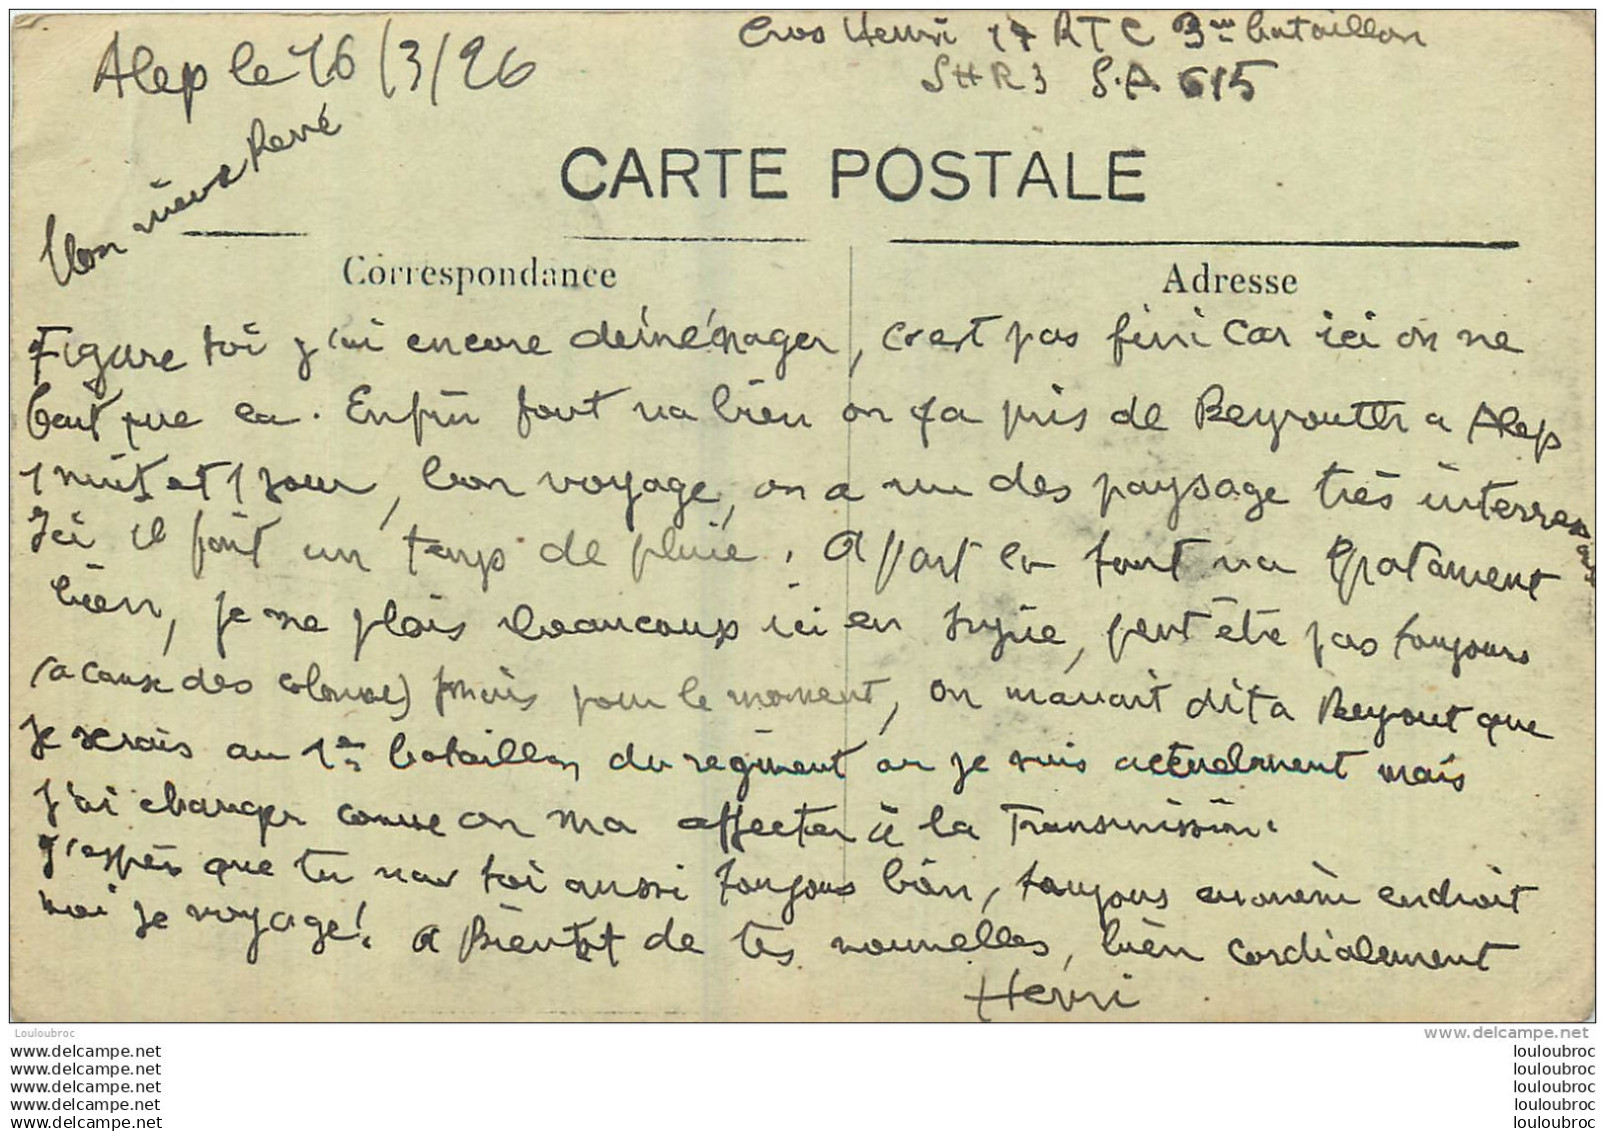 Cros Henri 17 RTC 3me bataillon
SHR3 S.A 615
Alep le 16/3/26
Mon vieux René
CARTE POSTALE
Correspondance
Adresse
Figure toi j'ai encore deménager, c'est pas fini car ici on ne
fait que ca. Enfin tout va bien on ça pris de Beyrouth a Alep
1 nuit et 1 jour, bon voyage, on a vu des paysage très interressant
Ici il fait un temps de pluie. A part ca tout va Epatament
bien, je me plais beaucoup ici en Syrie, peut être pas toujours
(a cause des colonne) mais pour le moment, on mavait dit a Beyrout que
je serais au 1er bataillon du regiment ou je suis actuelement mais
j'ai changer comme on ma affecter à la Transmission.
j'espère que tu vas toi aussi toujours bien, toujours au même endroit
moi je voyage! A Bientot de tes nouvelles, bien cordialement
Henri
Louloubroc
www.delcampe.net
www.delcampe.net
louloubroc
www.delcampe.net
louloubroc
www.delcampe.net
louloubroc
www.delcampe.net
louloubroc
www.delcampe.net
louloubroc